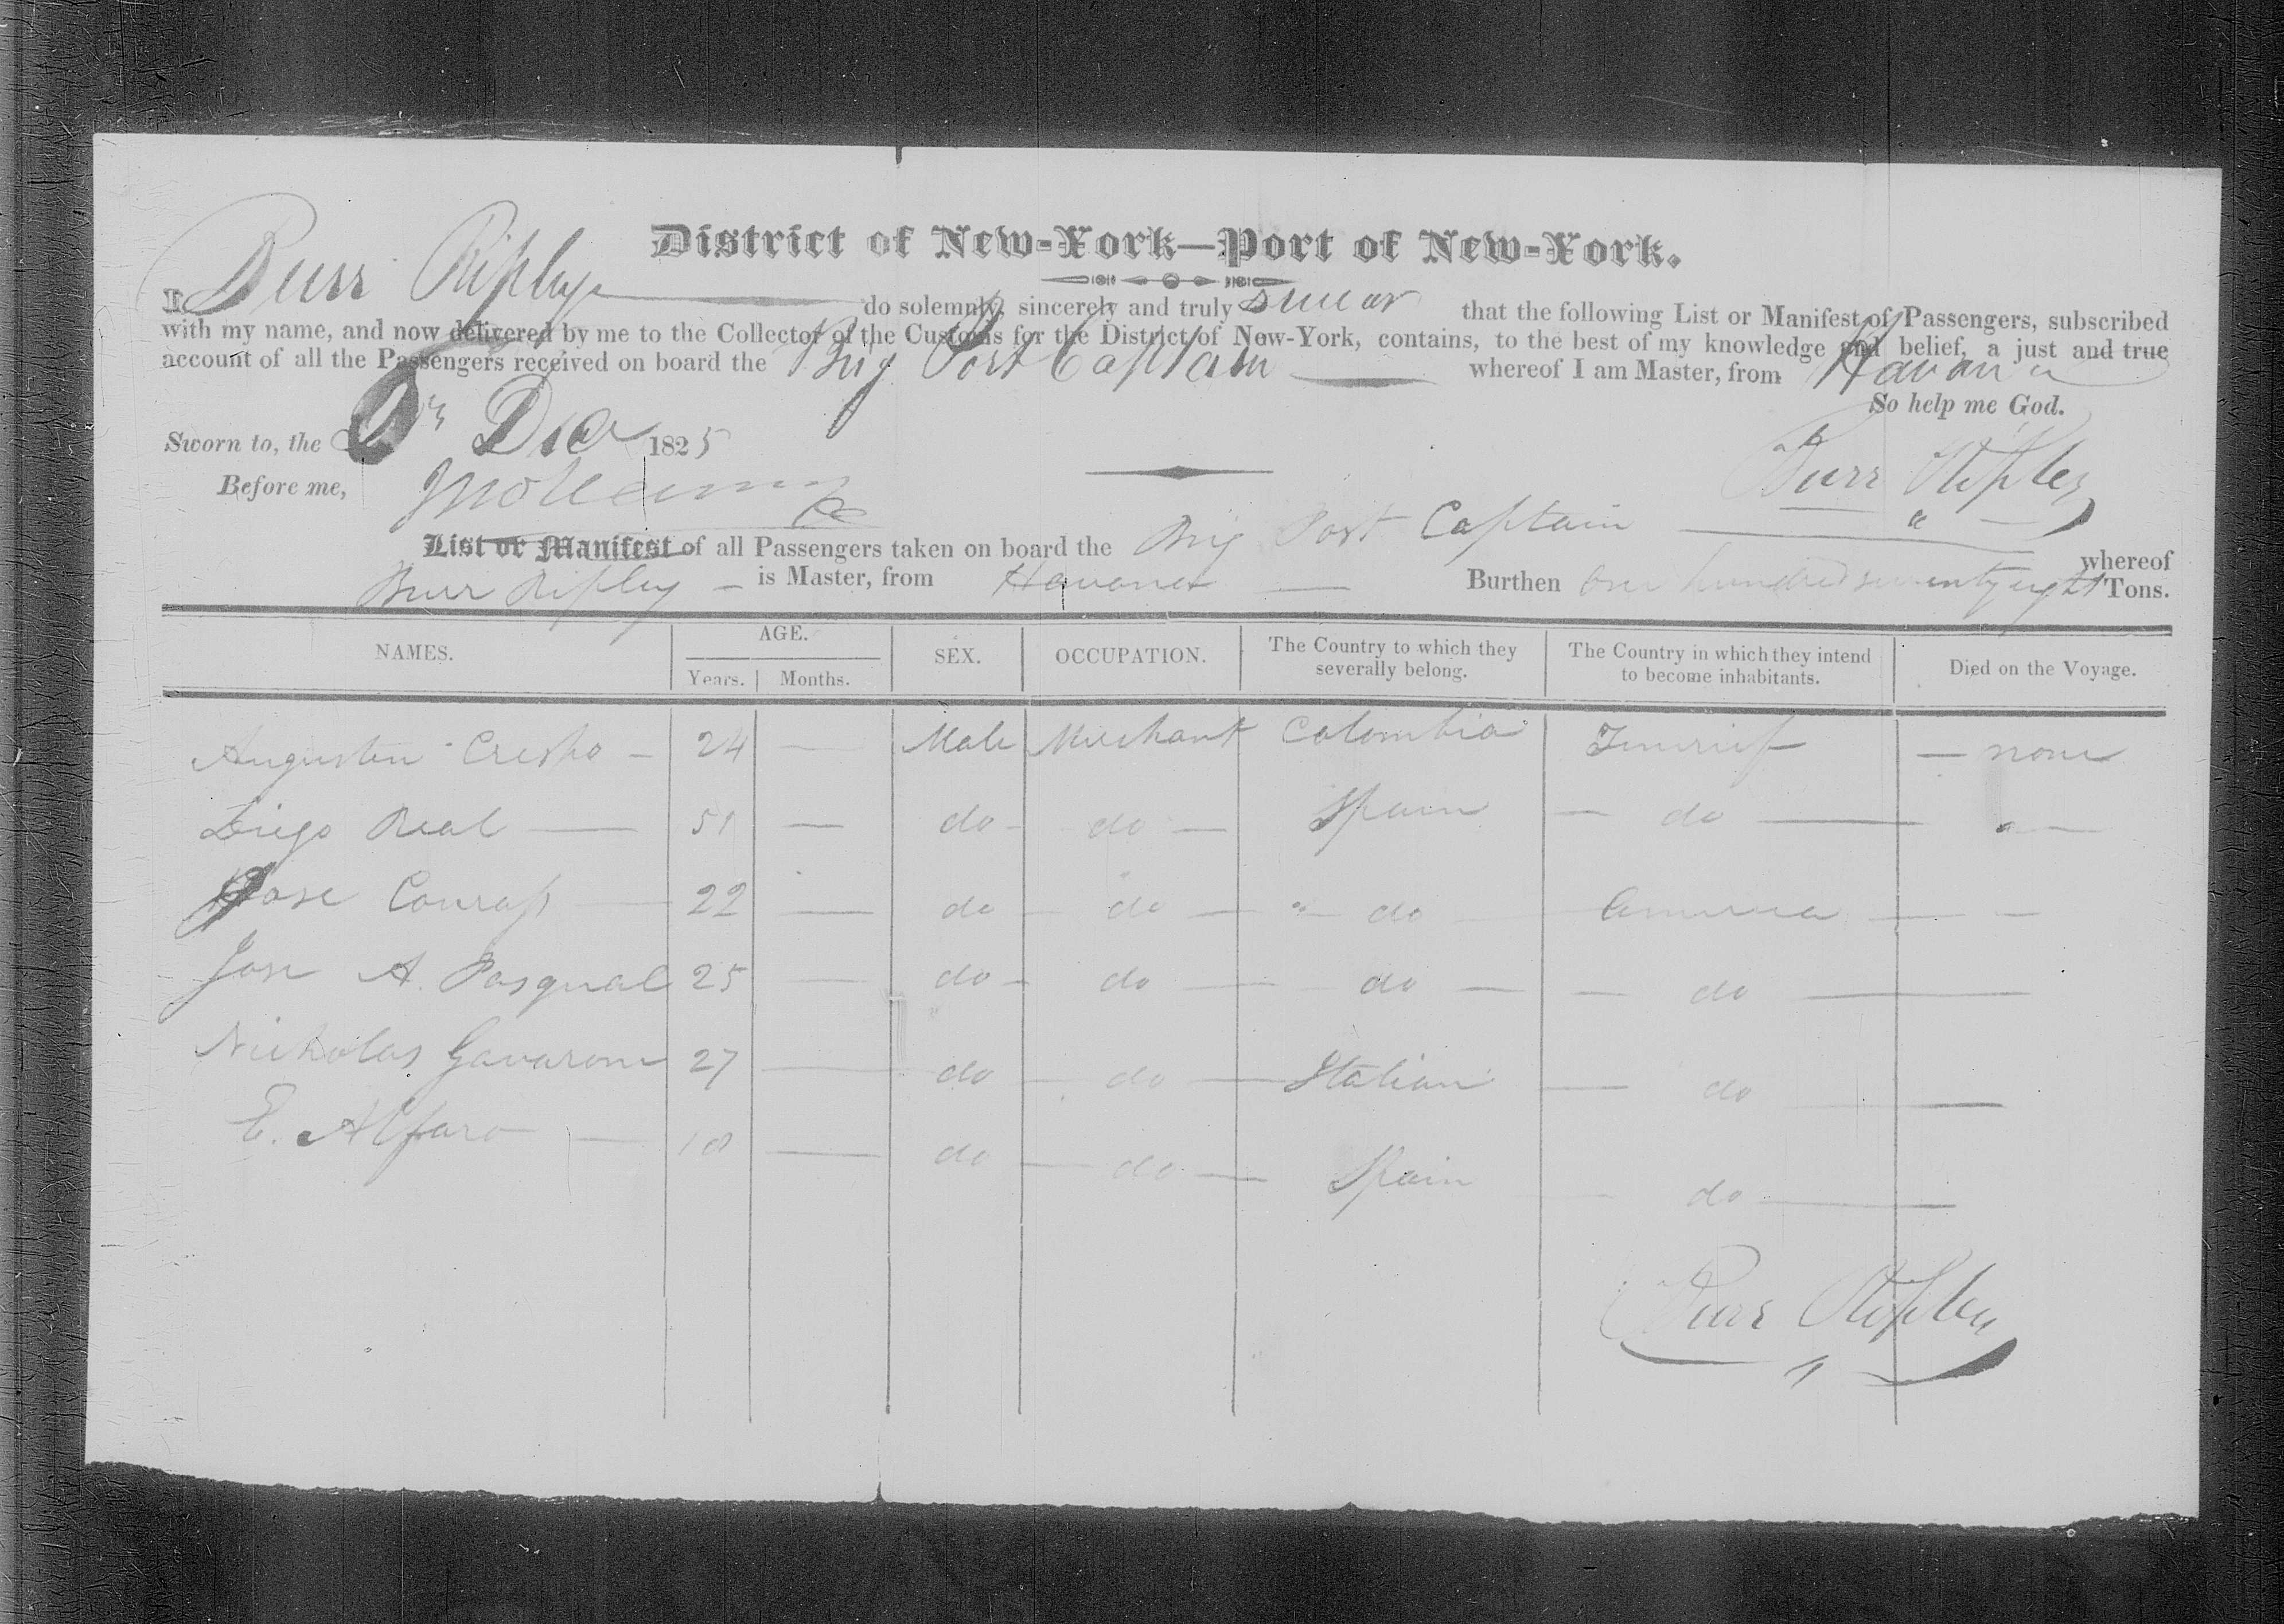 District of New-York—Port of New-York.
I, Burr Ripley do solemnly, sincerely and truly swear that the following List or Manifest of Passengers, subscribed
with my name, and now delivered by me to the Collector of the Customs for the District of New-York, contains, to the best of my knowledge and belief, a just and true
account of all the Passengers received on board the Brig Post Captain whereof I am Master, from Havana
So help me God.
Sworn to, the Decr 1825
Burr Ripley
Before me,
List or Manifest of all Passengers taken on board the Brig Post Captain whereof
Burr Ripley — is Master, from Havana — Burthen One hundred seventy eight Tons.
NAMES. AGE. SEX. OCCUPATION. The Country to which they severally belong. The Country in which they intend to become inhabitants. Died on the Voyage.
Years. Months.
Augustin Crespo — 24 — Male Merchant Colombia Teneriff — none
Diego Real — 51 — do — do — Spain — do —
Jose 22 — do — do — do — America —
Jose A. Pasqual 25 — do — do — do — do —
Nicholas Gavarone 27 — do — do — Italian — do —
E. Alfaro — 18 — do — do — Spain — do —
Burr Ripley